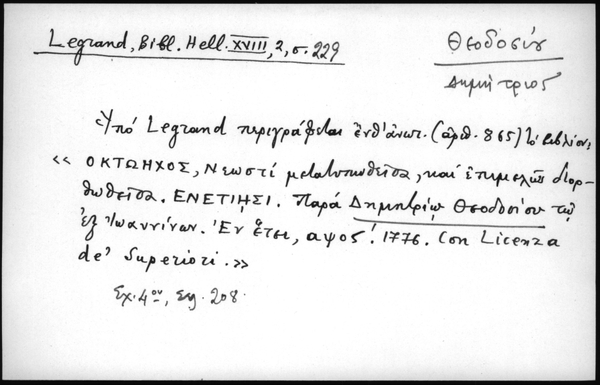 Legrand, Bibl. Hell. XVIII, 2, σ. 229
Θεοδοσίου
Δημήτριος
Ὑπὸ Legrand περιγράφεται ἐνθ' ἀνωτ. (ἀριθ. 865) τὸ βιβλίον:
« ΟΚΤΩΗΧΟΣ, Νεωστί μετατυπωθεῖσα, καί ἐπιμελῶς διορ-
θωθεῖσα. ΕΝΕΤΙΗΣΙ. Παρά Δημητρίῳ Θεοδοσίου τῷ
ἐξ Ἰωαννίνων. Ἐν ἔτει, αψοϛ΄. 1776. Con Licenza
de' Superiori. »
Σχ. 4ον, Σελ. 208.